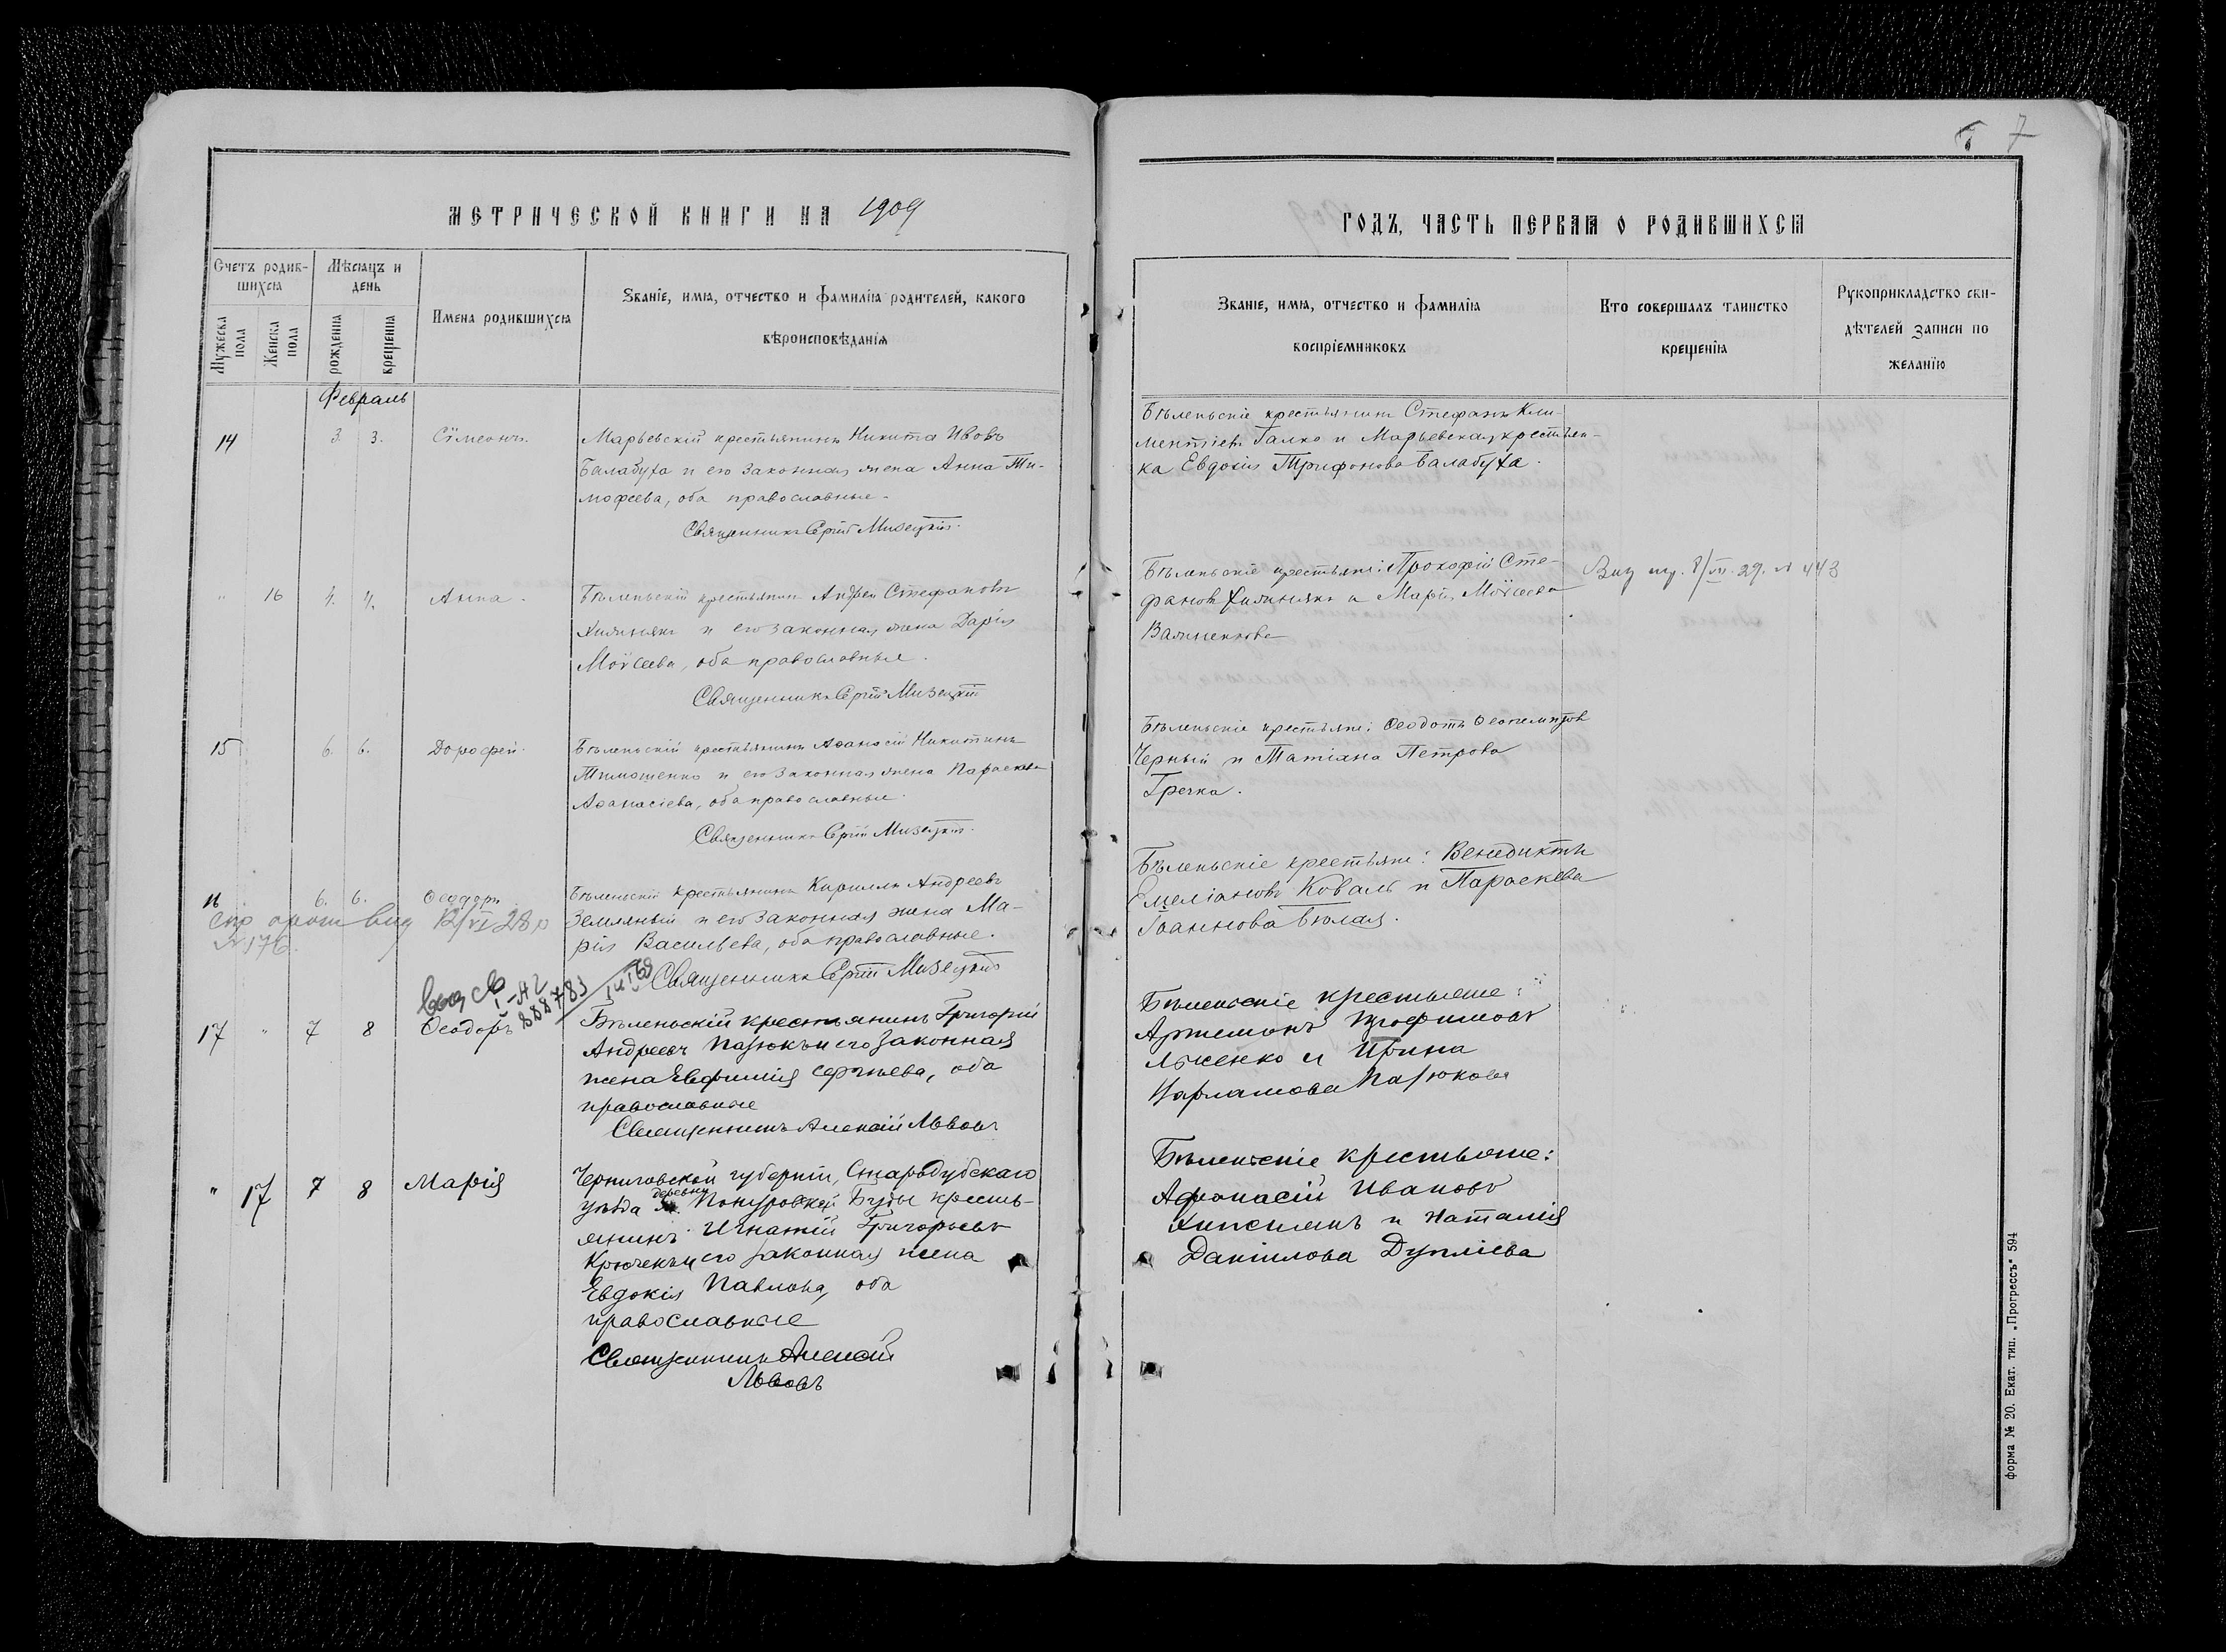 7
МЕТРИЧЕСКОЙ КНИГИ НА 1909
ГОДЪ, ЧАСТЬ ПЕРВАЯ О РОДИВШИХСЯ
Счетъ родив-
шихся
Мѣсяцъ и
день
Мужеска
пола
Женска
пола
рожденія
крещенія
Имена родившихся
Званіе, имя, отчество и фамилія родителей, какого
вѣроисповѣданія
Званіе, имя, отчество и фамилія
воспріемниковъ
Кто совершалъ таинство
крещенія
Рукоприкладство сви-
дѣтелей записи по
желанію
Февраль
14 3. 3. Сѵмеонъ.
Марьевскій крестьянинъ Никита Ивовъ
Балабуха и его законная жена Анна Ти-
мофеева, оба православные.
Священникъ Сергій Мизецкій.
Бѣленьскіе крестьянинъ Стефанъ Кли-
ментіевъ Галко и Марьевская крестьян-
ка Евдокія Трифонова Балабуха.
" 16 4. 4. Анна.
Бѣленьскій крестьянинъ Андрей Стефановъ
и его законная жена Дарія
Моѵсеева, оба православные.
Священникъ Сергій Мизецкій
Бѣленьскіе крестьяне: Прокофій Сте-
фановъ и Марія Моѵсеева
8/VII 29. № 443
15 6. 6. Дорофей.
Бѣленьскій крестьянинъ Аѳанасій Никитинъ
Тимошенко и его законная жена Параскева
Аѳанасіева, оба православные.
Священникъ Сергій Мизецкій.
Бѣленьскіе крестьяне: Ѳеодотъ
Черный и Татіана Петрова
Гречка.
16 6. 6. Ѳеодоръ
Бѣленьскій крестьянинъ Кириллъ Андреевъ
Земляный и его законная жена Ма-
рія Васильева, оба православные.
Священникъ Сергій Мизецкій
12/VI 28 р
№ 176.
Бѣленьскіе крестьяне: Венедиктъ
Емеліановъ Коваль и Параскева
Іоаннова Бѣлая.
888783
17 " 7 8 Ѳеодоръ
Бѣленьскій крестьянинъ Григорій
Андреевъ Пазюкъ и его законная
жена Евфимія Сергѣева, оба
православные
Священникъ Алексій Львовъ
Бѣленьскіе крестьяне:
Артемонъ Трофимовъ
и Ирина
Пазюкова
" 17 7 8 Марія
Черниговской губерніи, Стародубскаго
уѣзда деревни Понуровской Буды кресть-
янинъ Игнатій Григорьевъ
Крючекъ и его законная жена
Евдокія Павлова, оба
православные
Священникъ Алексій
Львовъ
Бѣленьскіе крестьяне:
Афанасій Ивановъ
и Наталія
Даніилова Дуплієва
форма № 20. Екат. тип. „Прогрессъ" 594